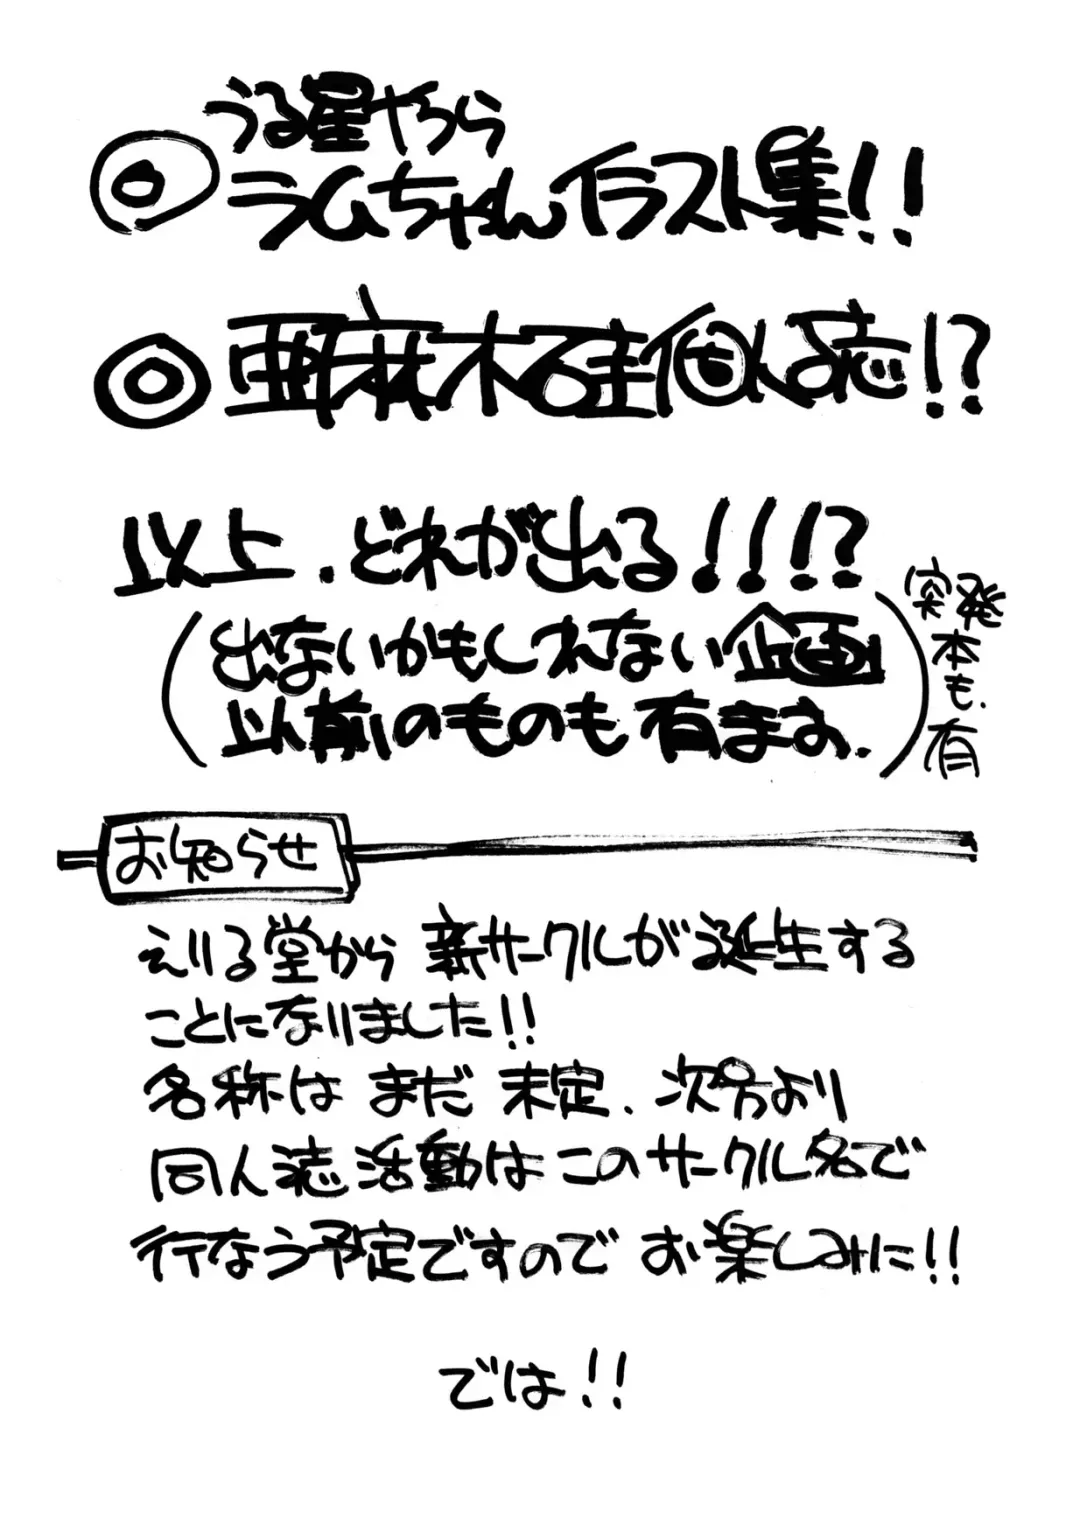 ◎うる星やつら
ラムちゃんイラスト集!!
◎亜麻木硅個人誌!?
以上.どれが出る!!!?
(出ないかもしれない企画
以前のものも有ます.)
突発
本も.
有
お知らせ
えりる堂から 新サークルが誕生する
ことになりました!!
名称は まだ 未定. 次号より
同人誌活動はこのサークル名で
行なう予定ですので お楽しみに!!
では!!